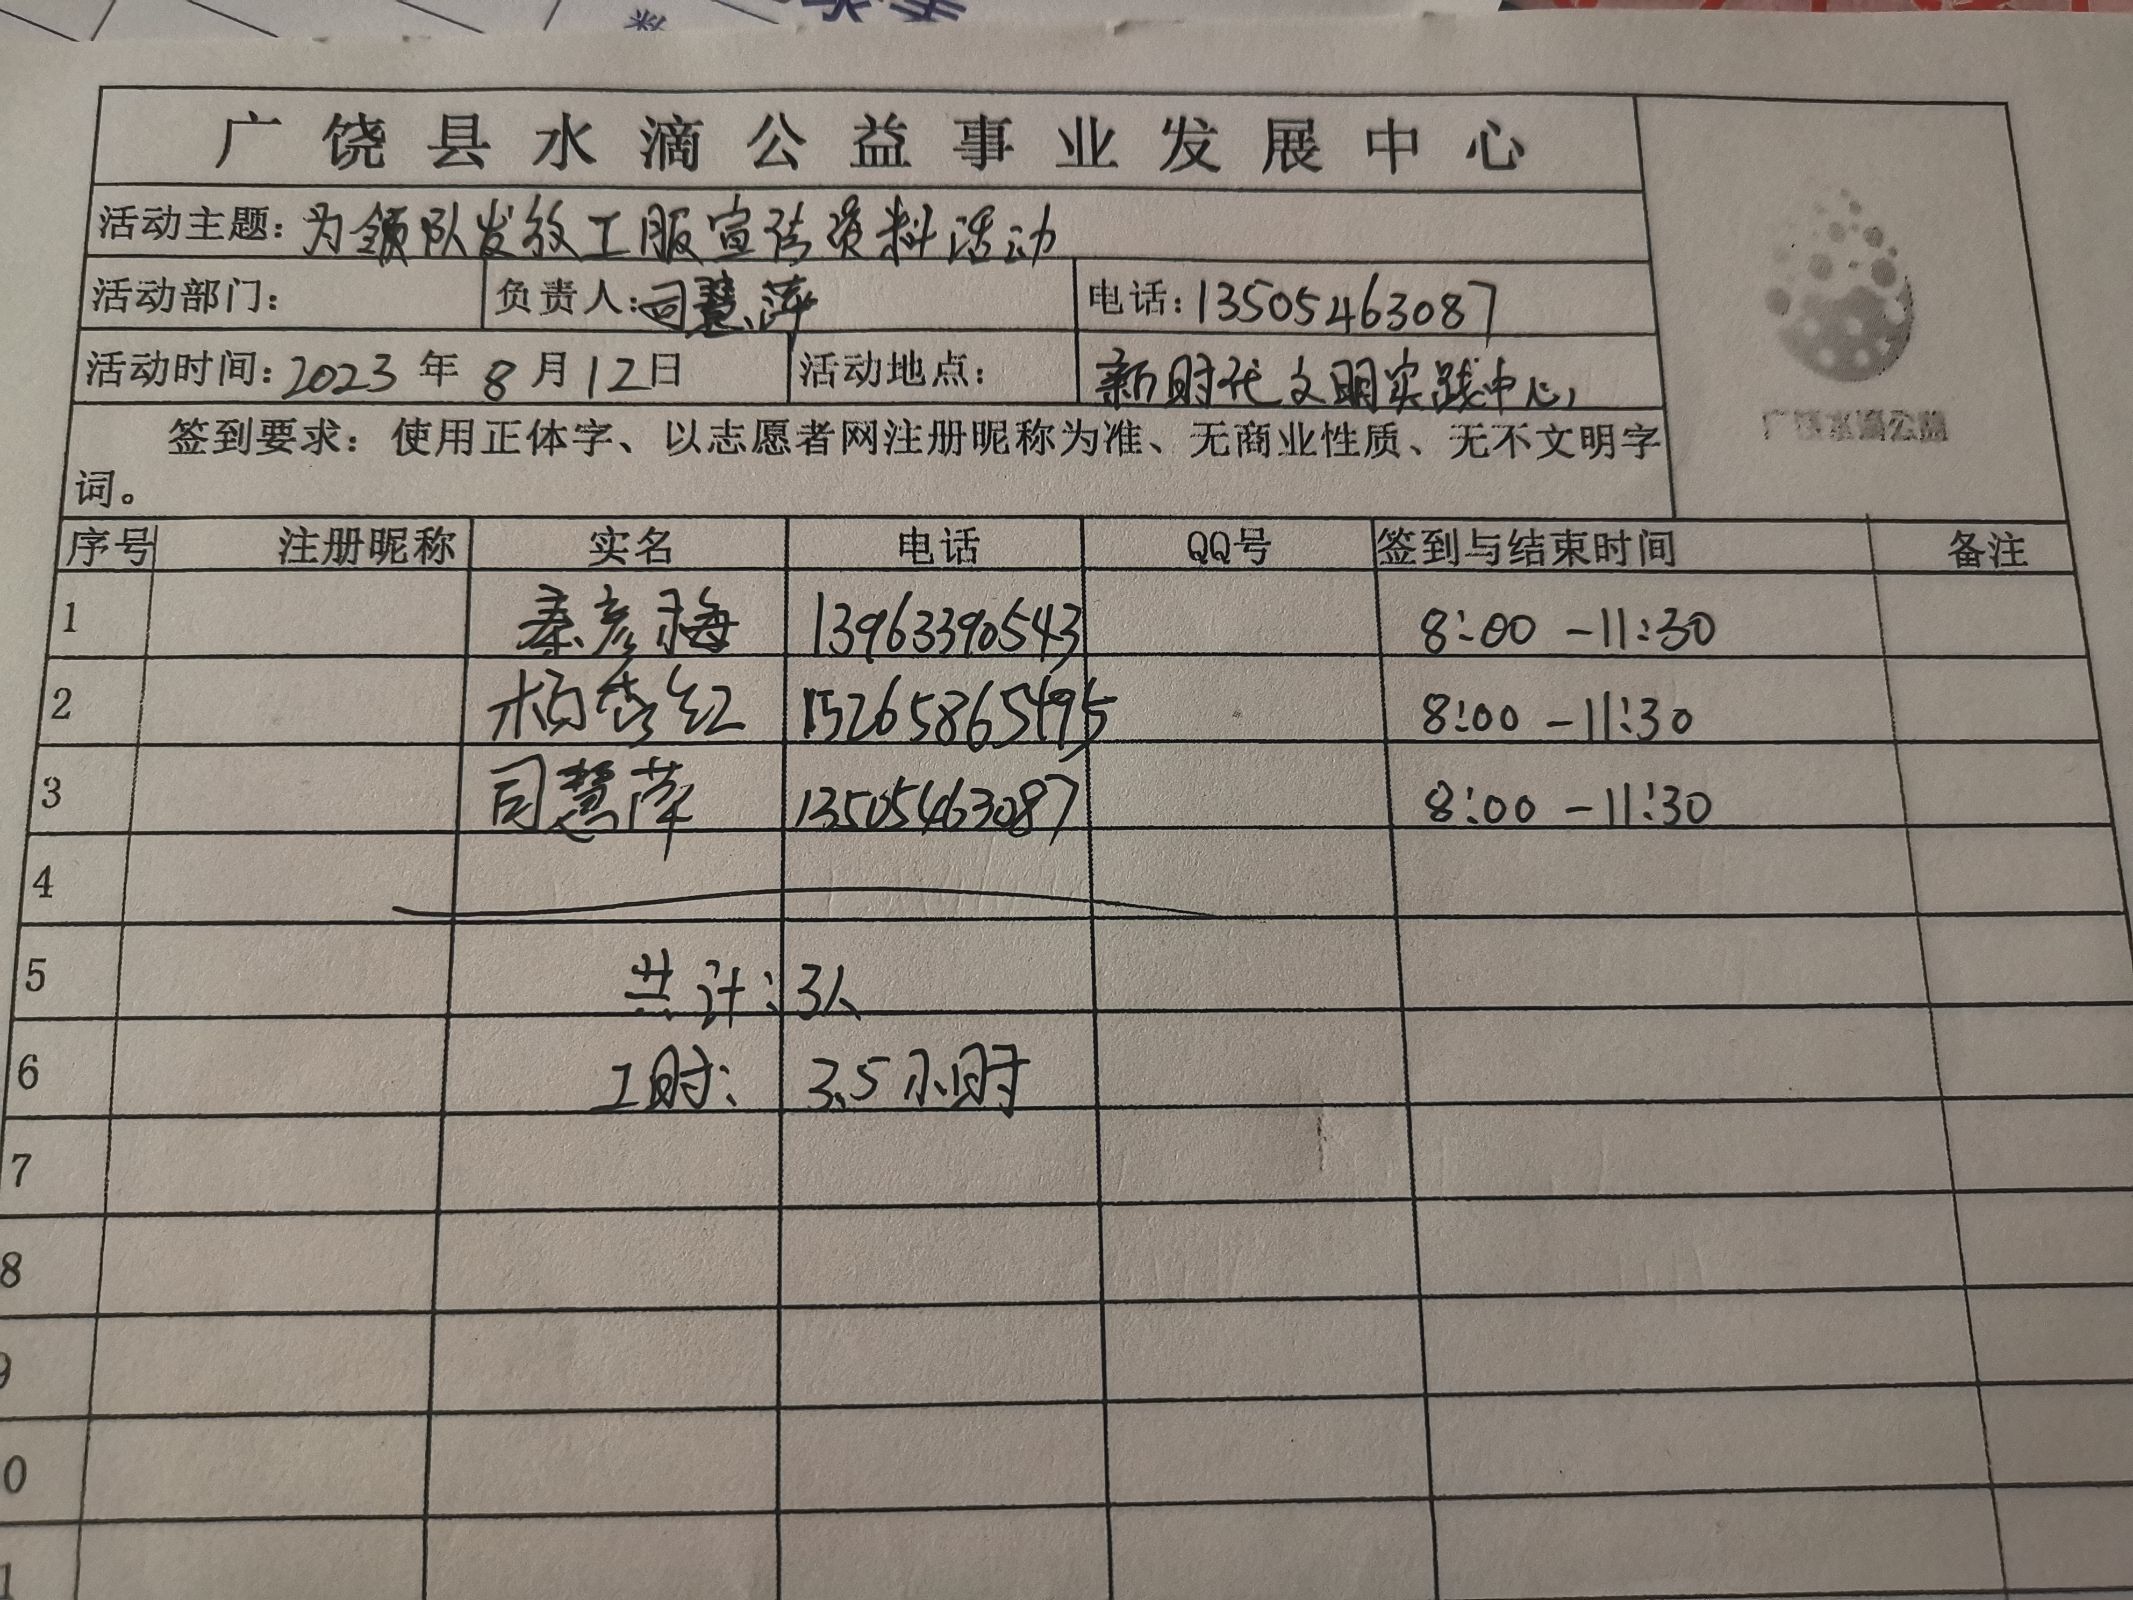 广饶县水滴公益事业发展中心
活动主题：为领队发放工服宣传资料活动
活动部门： 负责人：司慧萍 电话：13505463087
活动时间：2023年8月12日 活动地点： 新时代文明实践中心
签到要求：使用正体字、以志愿者网注册昵称为准、无商业性质、无不文明字
词。
广饶水滴公益
序号 注册昵称 实名 电话 QQ号 签到与结束时间 备注
1 秦彦梅 13963390543 8:00-11:30
2 杨秀红 15265865495 8:00-11:30
3 司慧萍 13505463087 8:00-11:30
4
5 共计：3人
6 工时：3.5小时
7
8
9
0
1